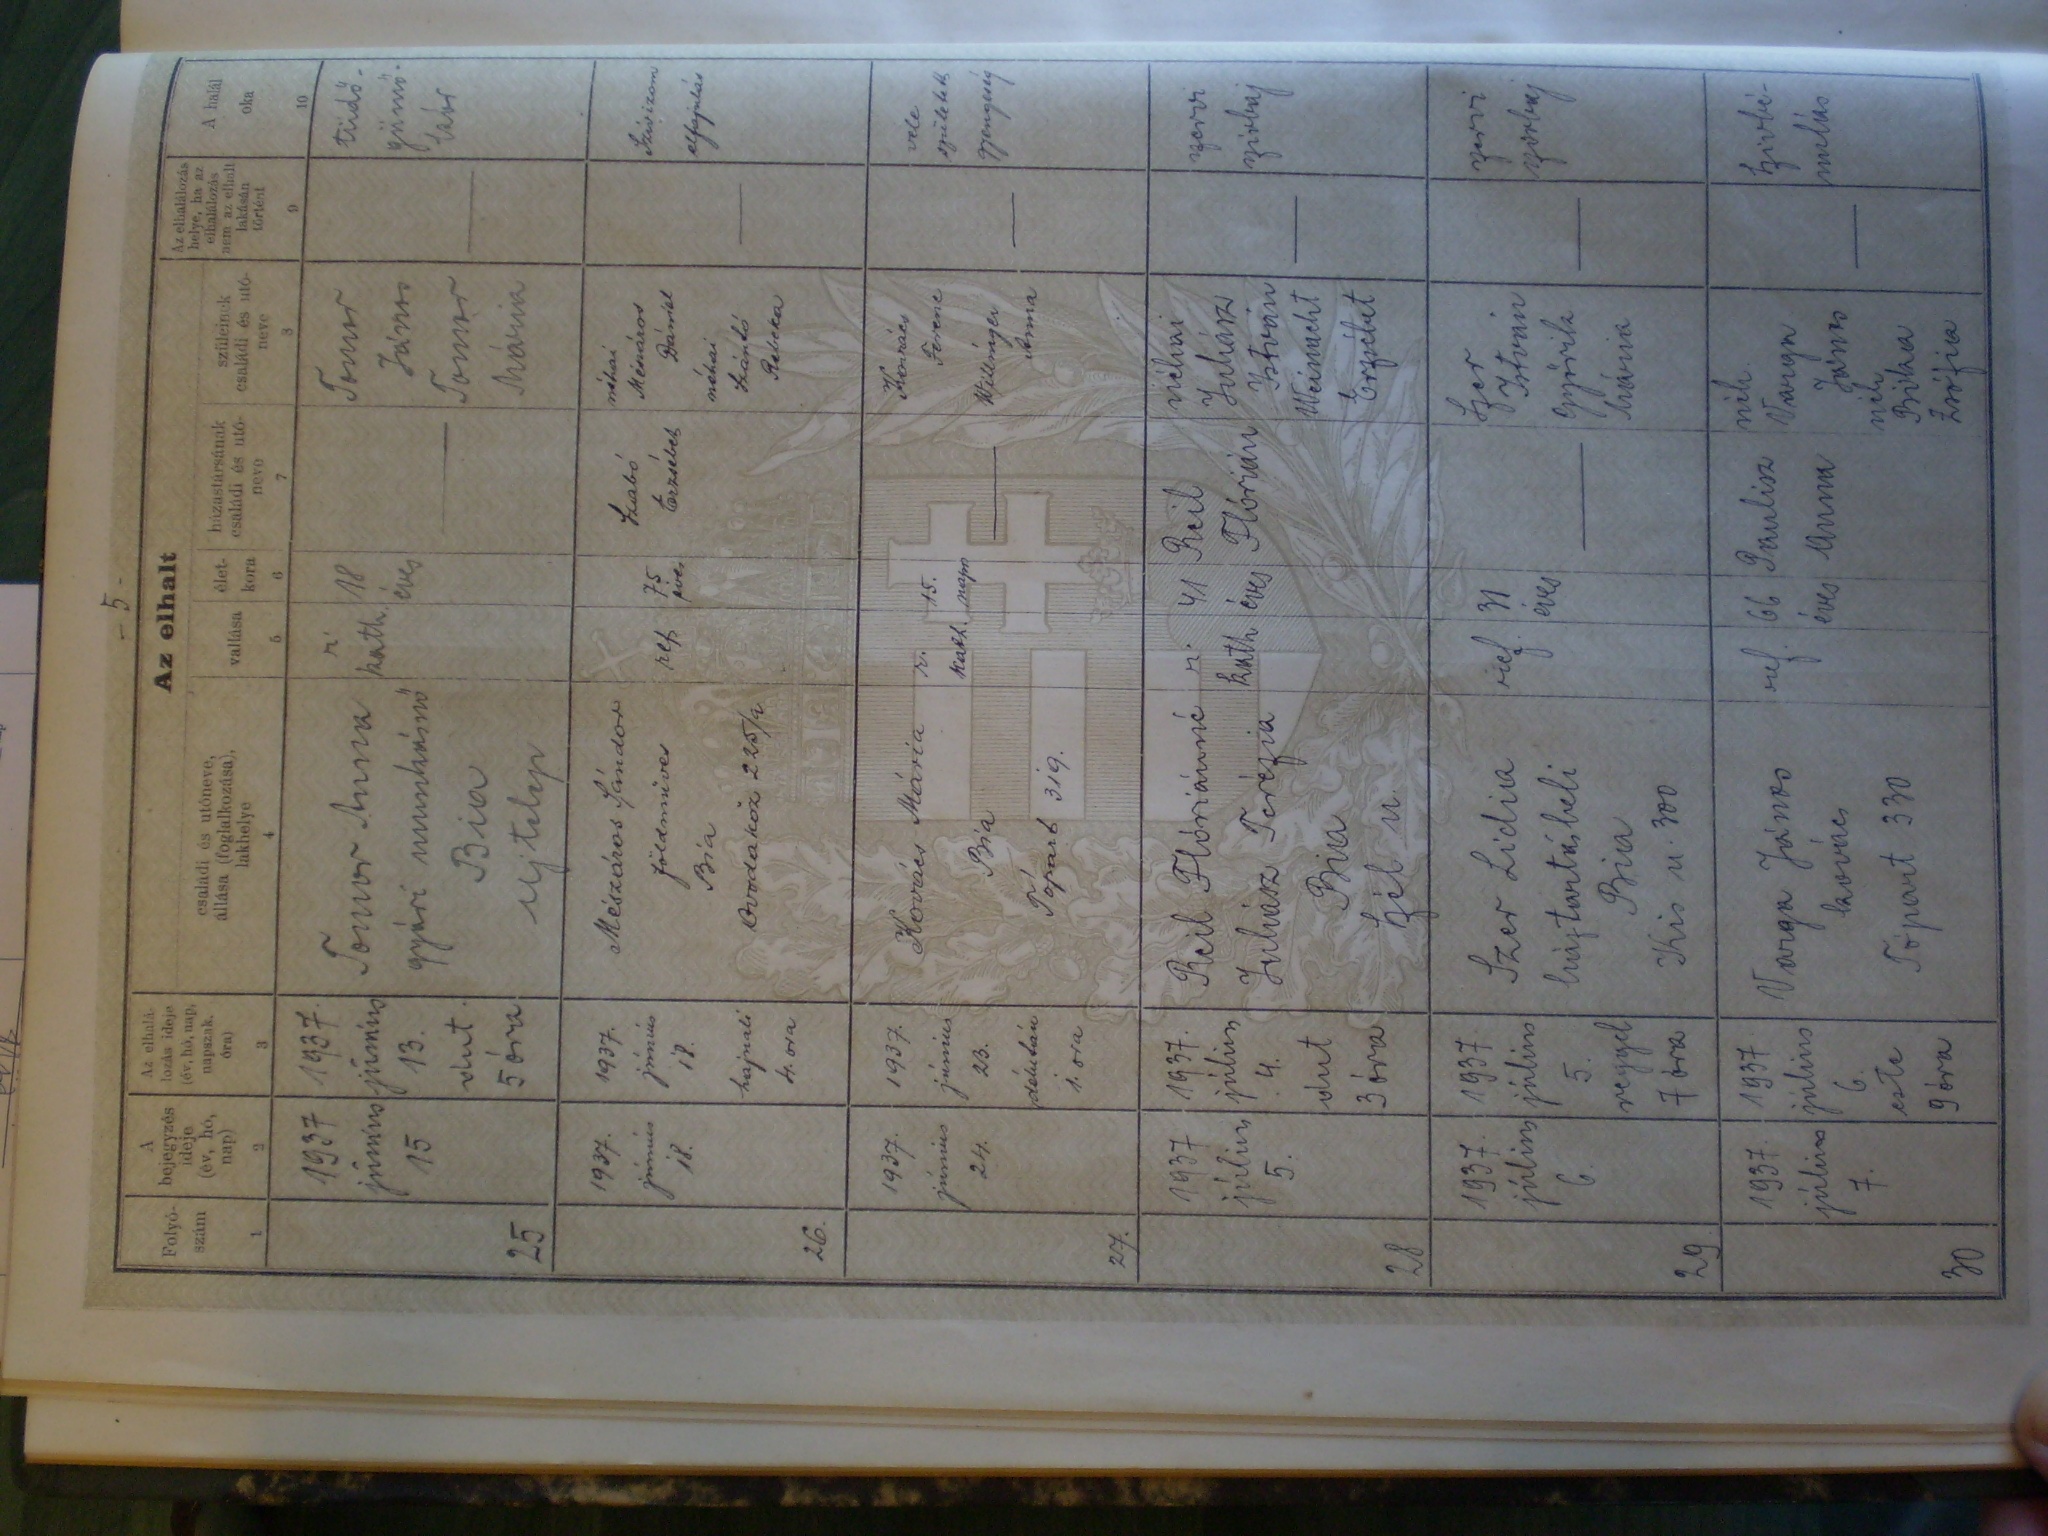 - 5 -
Az elhalt
Folyó-
szám
A
bejegyzés
ideje
(év, hó,
nap)
Az elhalá-
lozás ideje
(év, hó, nap,
napszak,
óra)
családi és utóneve,
állása (foglalkozása),
lakhelye
vallása
élet-
kora
házastársának
családi és utó-
neve
szüleinek
családi és utó-
neve
Az elhalálozás
helye, ha az
elhalálozás
nem az elhalt
lakásán
történt
A halál
oka
1
2
3
4
5
6
7
8
9
10
25
1937
június
15
1937.
június
13.
délut.
5 óra
Tomor Anna
gyári munkásnő
Bia
Ujtelep
r.
kath.
18
éves
Tomor
János
Tomor
Mária
tüdő-
gümő-
kór
26.
1937.
június
18.
1937.
június
18.
hajnali
4. óra
Mészáros Sándor
földmíves
Bia
Óvodaköz 225/a
ref.
75
éves
Szabó
Erzsébet
néhai
Mészáros
Dániel
néhai
Szántó
Rebeka
Szívizom
elfajulás
27.
1937.
június
24.
1937.
június
23.
délután
1. óra
Kovács Mária
Bia
Tópart 319.
r.
kath.
15.
napos
Kovács
Ferenc
Willinger
Anna
vele
született
gyengeség
28
1937
július
5.
1937.
július
4.
délut
3 óra
Reil Flóriánné
Juhász Terézia
Bia
Szél u.
r.
kath
41
éves
Reil
Flórián
néhai
Juhász
István
Weinacht
Erzsébet
szervi
szívbaj
29.
1937.
július
6.
1937.
július
5.
reggel
7 óra
Szer Lidia
háztartásbeli
Bia
Kis u. 300
ref.
31
éves
Szer
István
Mária
szervi
szívbaj
30
1937.
július
7.
1937.
július
6.
este
9 óra
Varga János
kovács
Tópart 330
ref.
66
éves
Paulisz
Anna
néh.
Varga
János
néh.
Zsófia
Szívbé-
nulás